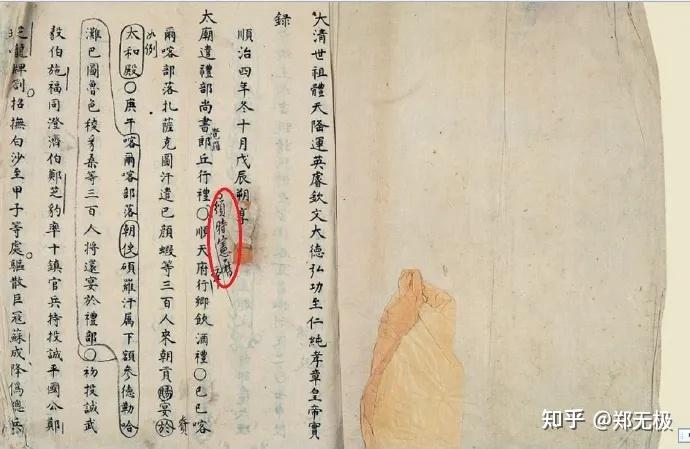 大清世祖體天隆運英睿欽文大德弘功至仁純孝章皇帝實
錄
順治四年冬十月戊辰朔享
頒時憲
太廟遣禮部尚書郎丘行禮○順天府行鄉飲酒禮○己巳喀
覺羅
爾喀部落扎薩克圖汗遣巴顏蝦等三百人來朝貢賜宴於
賚
如例
太和殿○庚午喀爾喀部落朝使碩羅汗屬下額參德勒哈
灘巴圖魯色稜多桑等三百人將還宴於禮部○初投誠武
毅伯施福同澄濟伯鄭芝豹率十鎮官兵持投誠平國公鄭
芝龍牌劄招撫白沙至甲子等處驅散巨寇蘇成降偽總兵
知乎 @郑无极